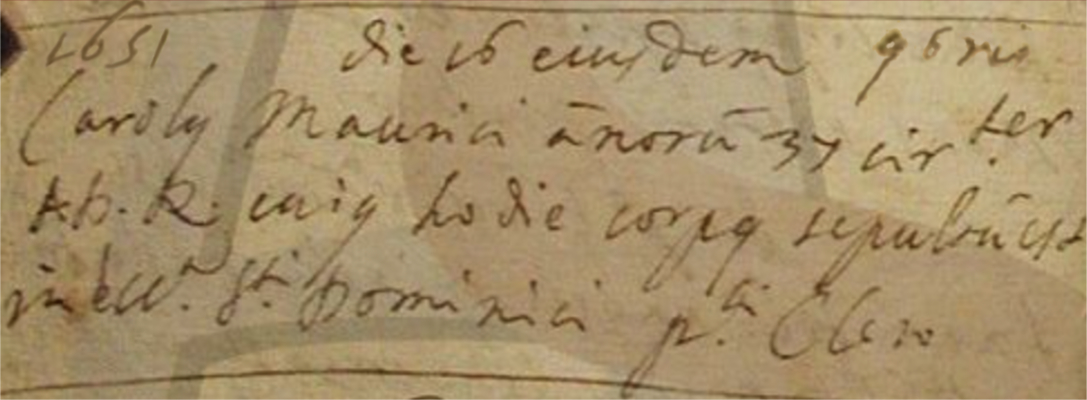 1651 die 16 eiusdem 9bris
Caroly Maurici ānorū 37 cir.ter
Ab. R. cuiq hodie corpq sepultū est
in eccl.a S.ti Dominici p.ti Clero